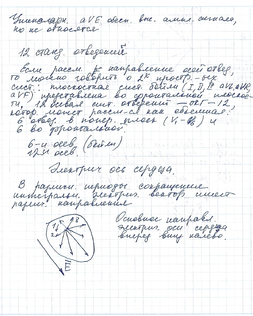 Униполярн. aVF обесп. вне. ампл. сигнала,
но не относятся
12 станд. отведений
Если рассм. направление осей отвед,
то можно говорить о 2х простр.-ых
сист: плоскостная сист. Бейли (I, II, III aVL, aVR,
aVF) представлена во фронтальной плоскос-
ти, 12 осевая сист. отведений — ЭКГ-12,
котор. может рассм-ся как объемная:
6 отвед. в попер. плоск (V₁-V₆) и
6 во фронтальной.
6-и осев. (Бейли)
12и осев.
Электрич ось сердца.
В различн. периоды сокращения
интегральн. электрич. вектор имеет
разли. направления
Основное направл.
электрич. оси сердца
вперед вниз налево.